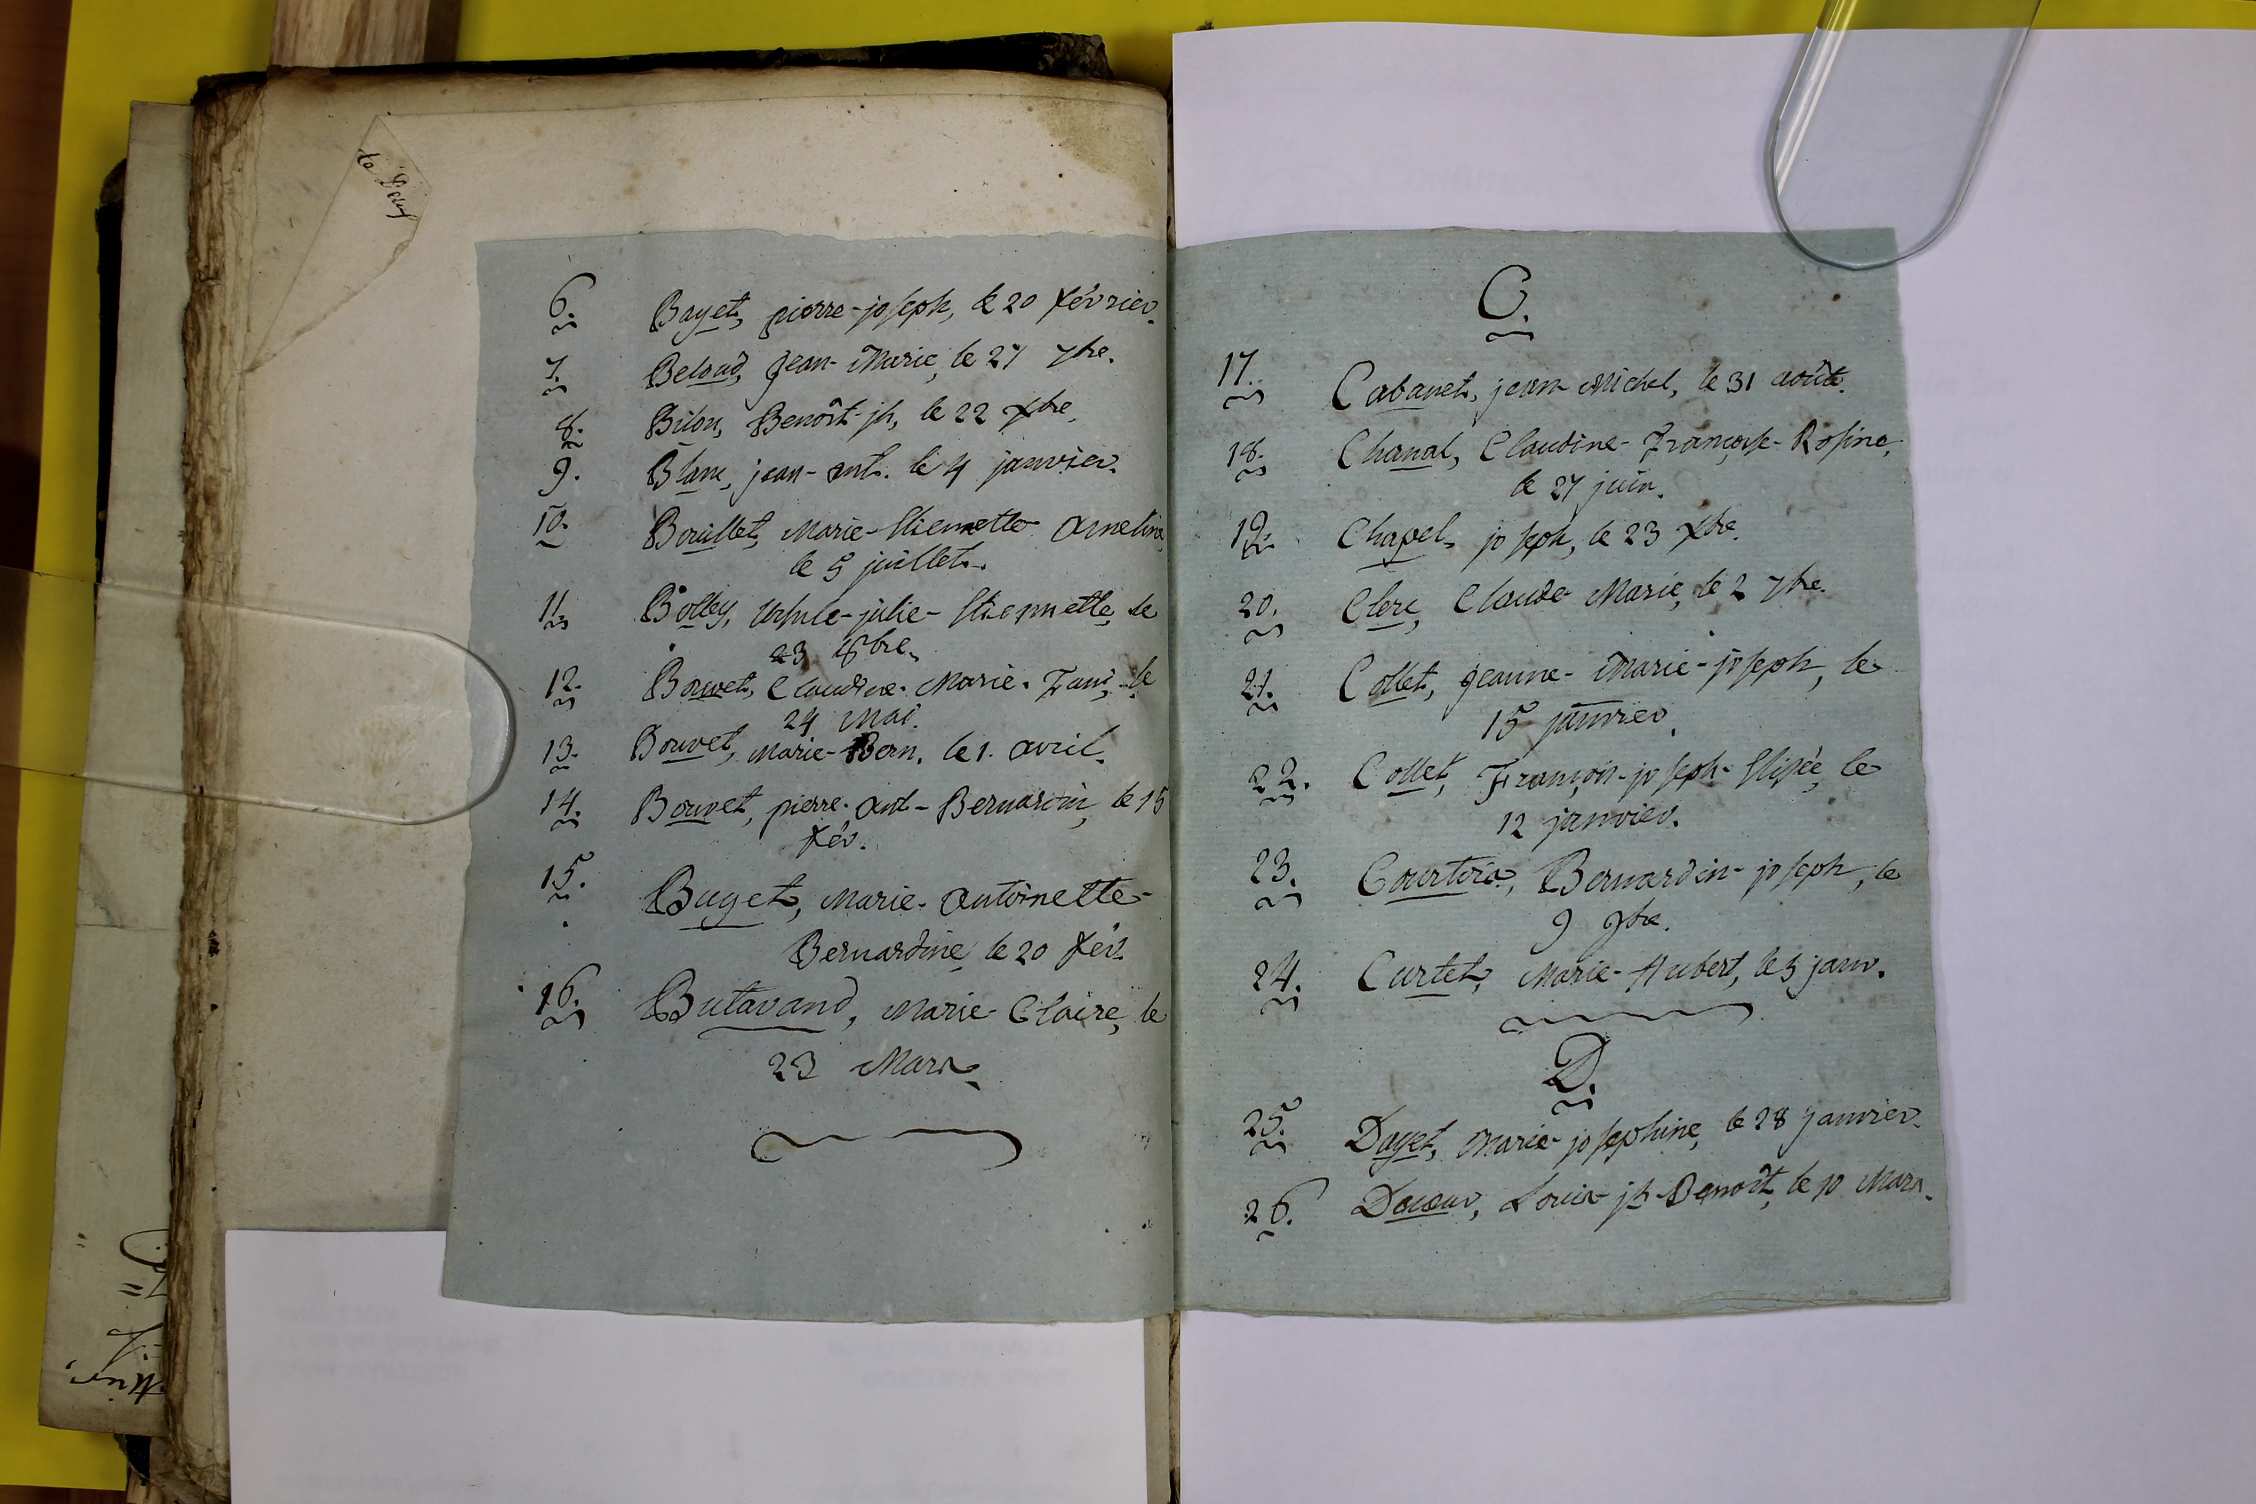 6. Bayet, pierre-joseph, le 20 février.
7. Belaud, Jean-Marie, le 27 7bre.
8. Bilon, Benoît-jh, le 22 Xbre.
9. Blanc, jean-ant. le 4 janvier.
10. Bouillet, Marie-Stiennette
le 5 juillet.
11. Bolley, Ursule-julie-Stiennette, le
23 8bre.
12. Bouvet, Claudine-Marie-Fani, le
24 Mai.
13. Bouvet, Marie-Bern. le 1. avril.
14. Bouvet, pierre-ant-Bernardin, le 15
fév.
15. Buget, Marie-Antoinette-
Bernardine, le 20 fév.
16. Butavand, Marie-Claire, le
23 Mars.
C.
17. Cabanet, jean-Michel, le 31 août.
18. Chanal, Claudine-Françoise-Rosine,
le 27 juin.
19. Chapel, joseph, le 23 Xbre.
20. Clerc, Claude Marie, le 2 7bre.
21. Collet, Jeanne-Marie-joseph, le
15 janvier.
22. Collet, François-joseph-Elisée, le
12 janvier.
23. Courtois, Bernardin-joseph, le
9 9bre.
24. Curtet, Marie-Hubert, le 3 janv.
D.
25. Dayet, Marie-josephine, le 28 janvier.
26. Louis-jh-Benoît, le 10 Mars.